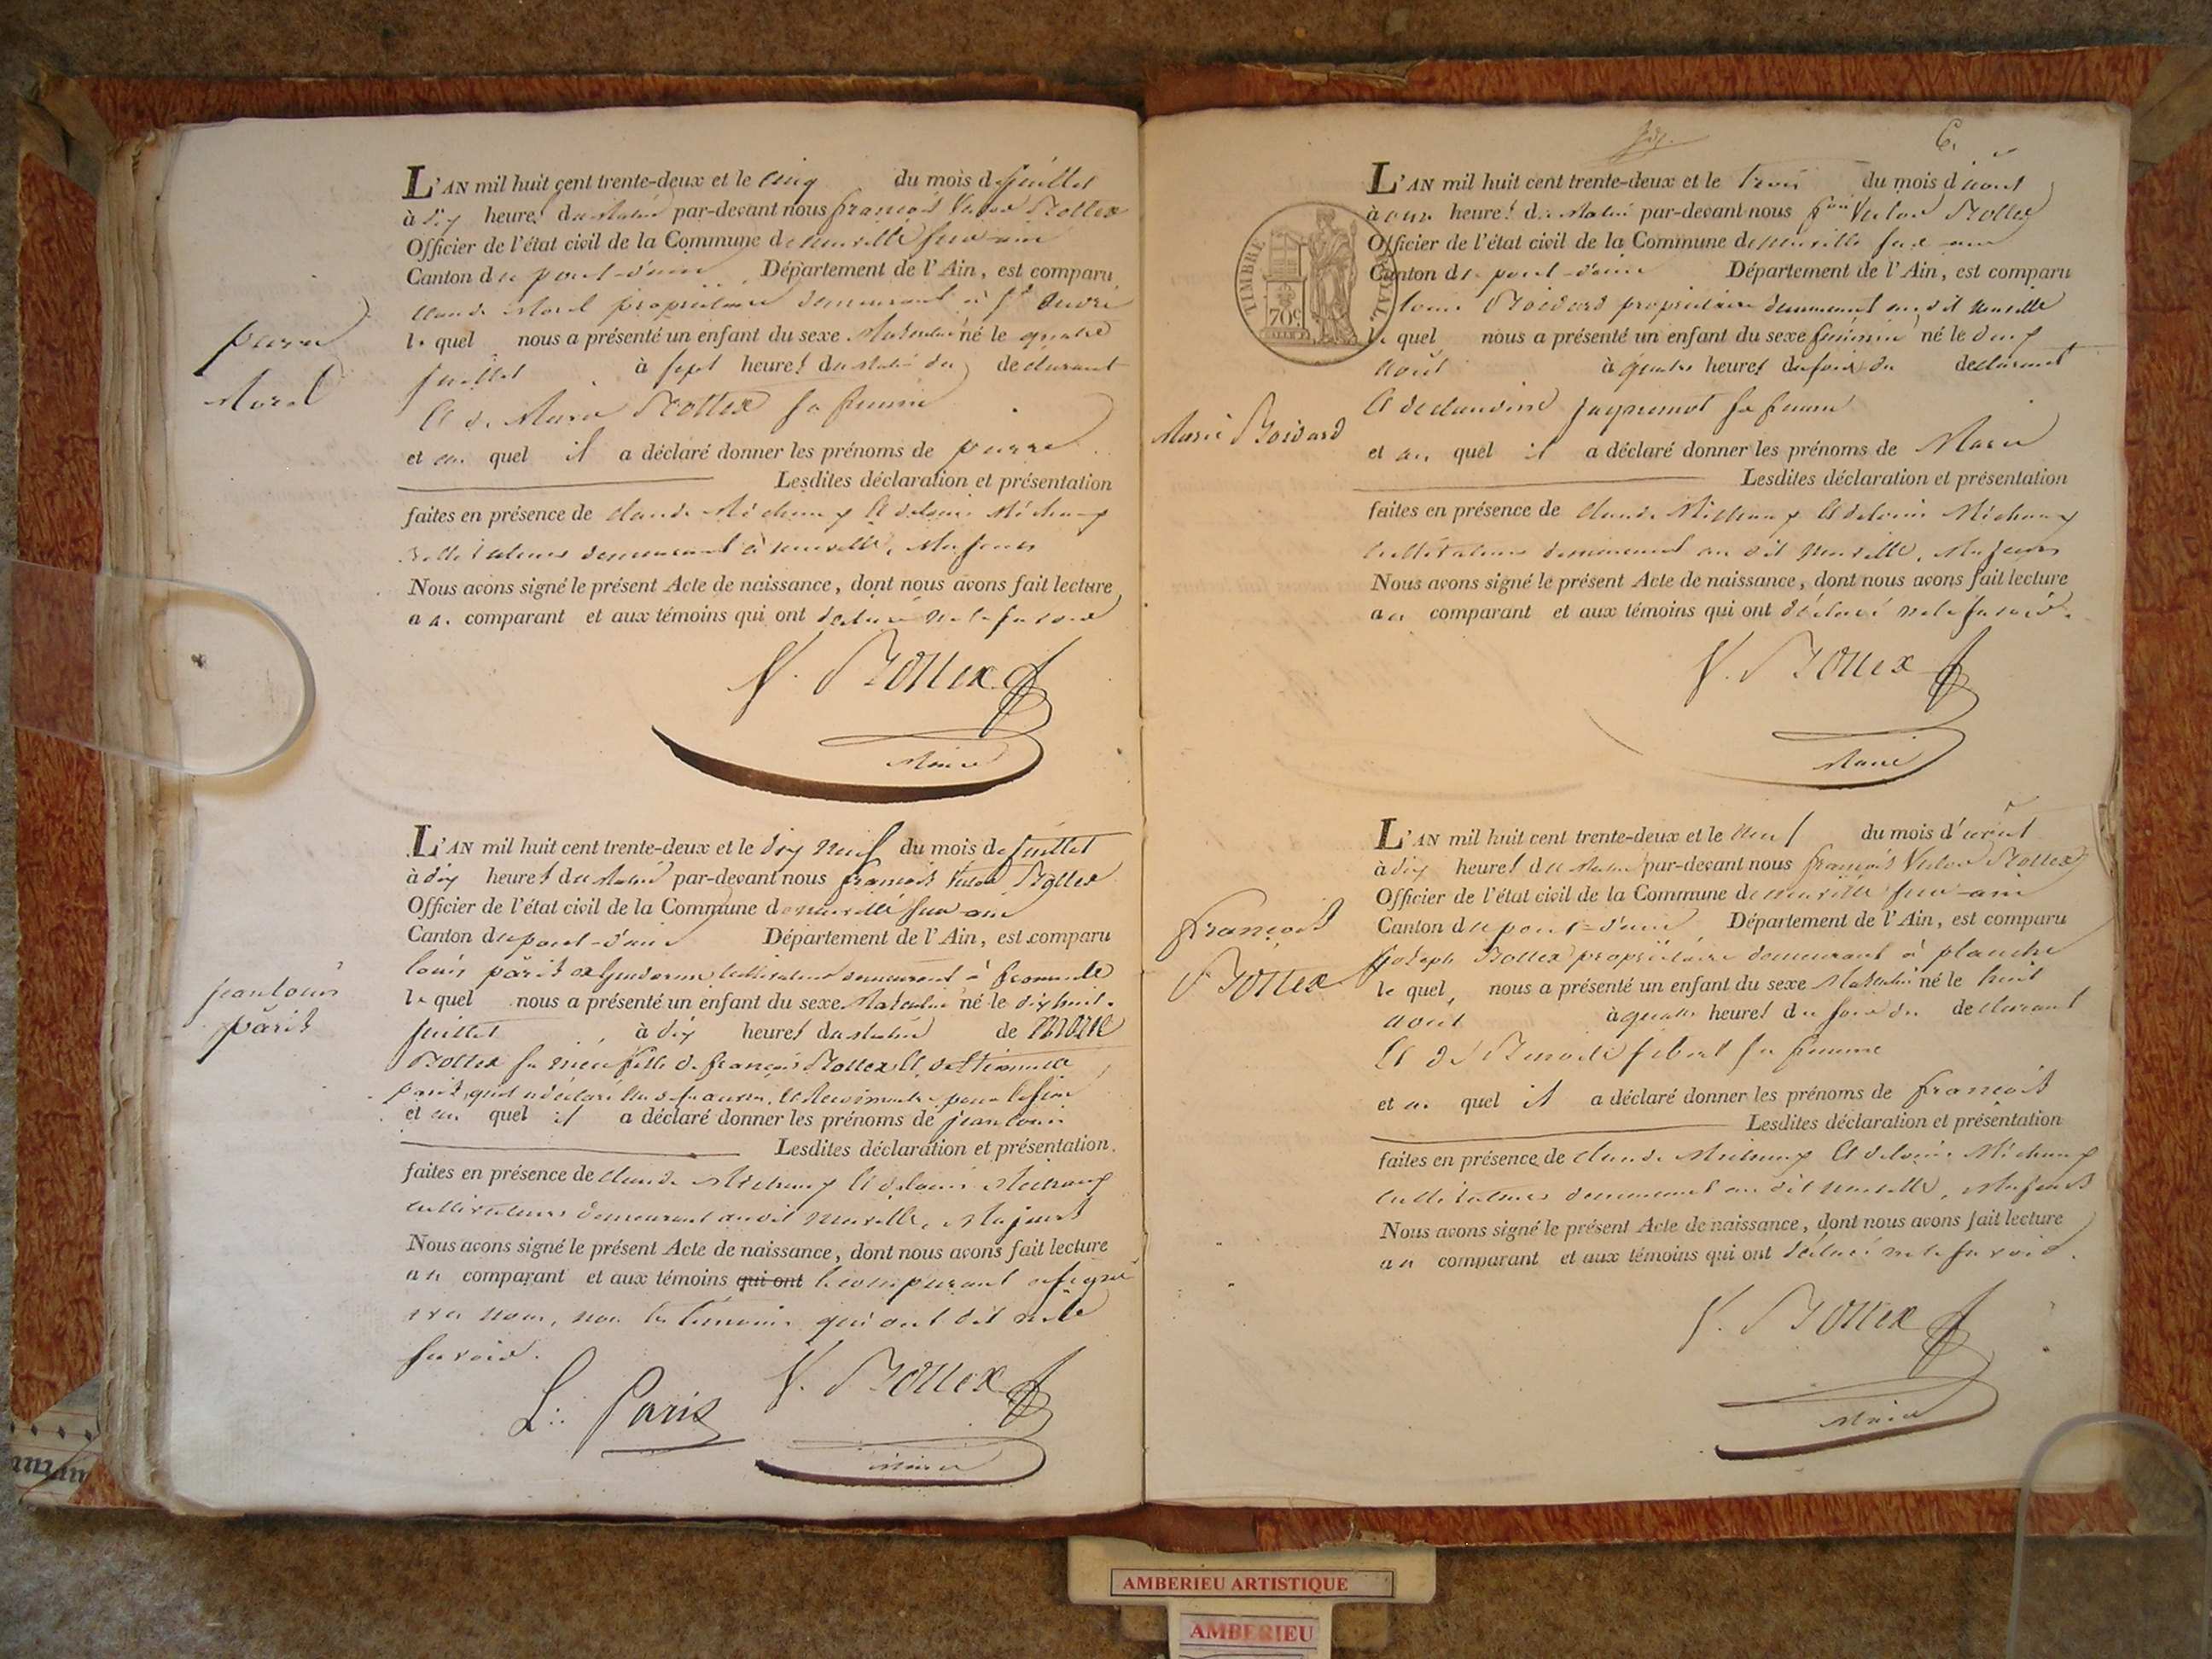 L'AN mil huit cent trente-deux et le cinq du mois de juillet
à dix heures du matin par-devant nous françois Victor Bottex
Officier de l'état civil de la Commune de neuville sur ain
Canton du pont-d'ain Département de l'Ain, est comparu
claude Morel propriétaire demeurant à St
le quel nous a présenté un enfant du sexe Masculin né le quatre
juillet à sept heures du matin du declarant
Et de Marie Bottex sa femme
et au quel il a déclaré donner les prénoms de pierre
Lesdites déclaration et présentation
faites en présence de claude Michaux Et de louis Michaux
cultivateurs demeurant à neuville, Majeurs
Nous avons signé le présent Acte de naissance, dont nous avons fait lecture
au comparant et aux témoins qui ont déclaré ne le savoir
V. Bottex
Maire
pierre
Morel
L'AN mil huit cent trente-deux et le dix neuf du mois de juillet
à dix heures du matin par-devant nous françois Victor Bottex
Officier de l'état civil de la Commune de neuville sur ain
Canton du pont-d'ain Département de l'Ain, est comparu
louis pâris ex gendarme cultivateur demeurant à fromente
le quel nous a présenté un enfant du sexe Masculin né le dix huit
juillet à dix heures du matin de
Bottex sa nièce fille de françois Bottex Et
et au quel il a déclaré donner les prénoms de jean louis
Lesdites déclaration et présentation
faites en présence de claude Michaux Et de louis Michaux
cultivateurs demeurant au dit neuville, Majeurs
Nous avons signé le présent Acte de naissance, dont nous avons fait lecture
au comparant et aux témoins qui ont le comparant a signé
avec nous, non les temoins qui ont dit ne le
savoir.
L. Paris V. Bottex
Maire
jean louis
pâris
6.
L'AN mil huit cent trente-deux et le trois du mois d'aout
à onze heures du matin par-devant nous fois Victor Bottex
Officier de l'état civil de la Commune de neuville sur ain
Canton du pont-d'ain Département de l'Ain, est comparu
louis Boivard propriétaire demeurant au dit neuville
le quel nous a présenté un enfant du sexe féminin né le deux
Août à quatre heures du soir du declarant
Et de claudine jaquemot sa femme
et au quel il a déclaré donner les prénoms de Marie
Lesdites déclaration et présentation
faites en présence de claude Michaux Et de louis Michaux
cultivateurs demeurant au dit neuville, Majeurs
Nous avons signé le présent Acte de naissance, dont nous avons fait lecture
au comparant et aux témoins qui ont déclaré ne le savoir.
V. Bottex
Maire
TIMBRE
70c
Marie Boivard
L'AN mil huit cent trente-deux et le neuf du mois d'août
à dix heures du matin par-devant nous françois Victor Bottex
Officier de l'état civil de la Commune de neuville sur ain
Canton du pont-d'ain Département de l'Ain, est comparu
joseph Bottex propriétaire demeurant à planche
le quel nous a présenté un enfant du sexe Masculin né le huit
Août à quatre heures du soir du declarant
Et de Benoite sibert sa femme
et au quel il a déclaré donner les prénoms de françois
Lesdites déclaration et présentation
faites en présence de claude Michaux Et de louis Michaux
cultivateurs demeurant au dit neuville, Majeurs
Nous avons signé le présent Acte de naissance, dont nous avons fait lecture
au comparant et aux témoins qui ont déclaré ne le savoir.
V. Bottex
Maire
françois
Bottex
AMBERIEU ARTISTIQUE
AMBERIEU